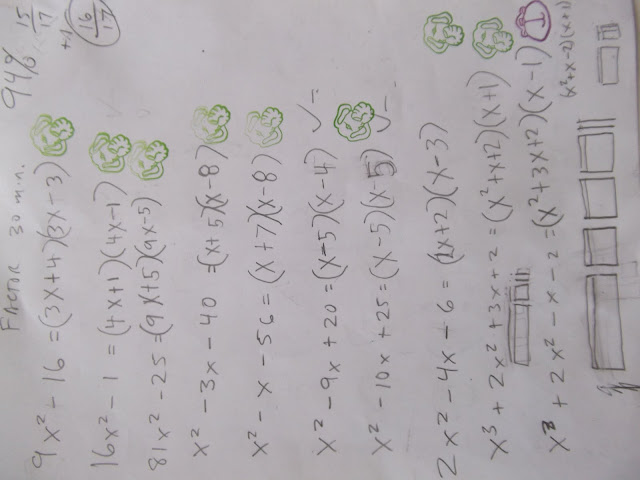 FACTOR 30 min. 94% 15/17
+1 16/17
9x² - 16 = (3x+4)(3x-3)
16x² - 1 = (4x+1)(4x-1)
81x² - 25 = (9x+5)(9x-5)
x² - 3x - 40 = (x+5)(x-8)
x² - x - 56 = (x+7)(x-8)
x² - 9x + 20 = (x-5)(x-4) ✓-
x² - 10x + 25 = (x-5)(x-5) ✓-
2x² - 4x - 6 = (2x+2)(x-3)
x³ + 2x² + 3x + 2 = (x²+x+2)(x+1)
x³ + 2x² - x - 2 = (x²+3x+2)(x-1)
(x²+x-2)(x+1)